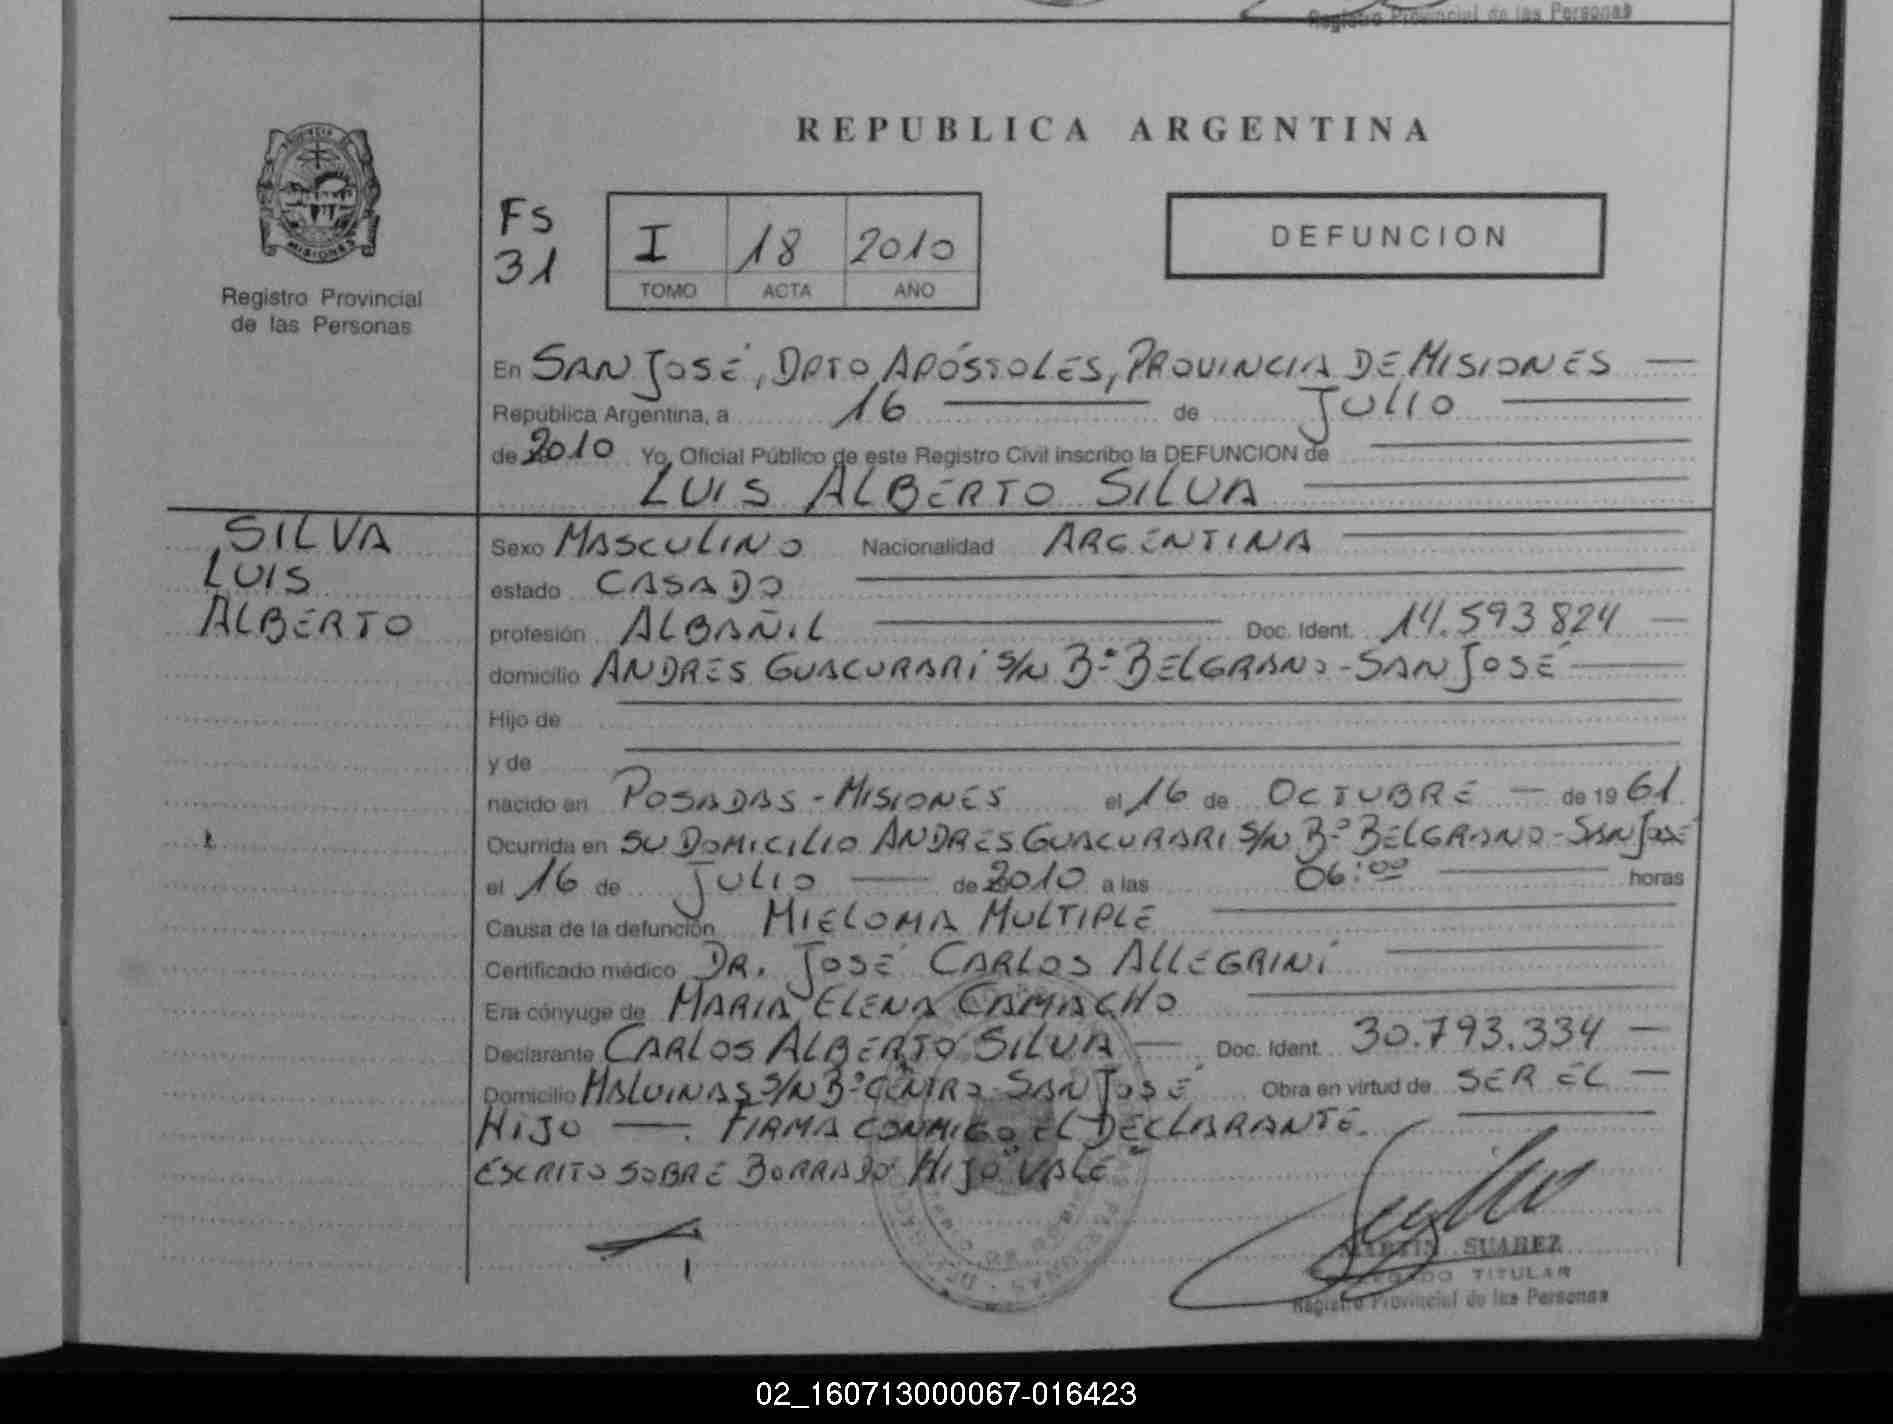 Registro Provincial de las Personas
PROVINCIA DE
MISIONES
Registro Provincial
de las Personas
REPUBLICA ARGENTINA
FS
31
I 18 2010
TOMO ACTA AÑO
DEFUNCION
En SAN JOSÉ, DPTO APÓSTOLES, PROVINCIA DE MISIONES
República Argentina, a 16 de JULIO
de 2010 Yo, Oficial Público de este Registro Civil inscribo la DEFUNCION de
LUIS ALBERTO SILVA
SILVA
LUIS
ALBERTO
Sexo MASCULINO Nacionalidad ARGENTINA
estado CASADO
profesión ALBAÑIL Doc. Ident. 14.593824
domicilio ANDRES GUACURARÍ S/N Bº BELGRANO - SAN JOSÉ
Hijo de
y de
nacido en POSADAS - MISIONES el 16 de OCTUBRE de 1961
Ocurrida en SU DOMICILIO ANDRES GUACURARI S/N Bº BELGRANO - SAN JOSÉ
el 16 de JULIO de 2010 a las 06:00 horas
Causa de la defunción MIELOMA MULTIPLE
Certificado médico DR. JOSÉ CARLOS ALLEGRINI
Era cónyuge de MARIA ELENA CAMACHO
Declarante CARLOS ALBERTO SILVA Doc. Ident. 30.793.334
Domicilio MALVINAS S/N Bº CENTRO - SAN JOSÉ Obra en virtud de SER EL
HIJO FIRMA CONMIGO EL DECLARANTE.
ESCRITO SOBRE BORRADO HIJO "VALE"
MARTIN SUAREZ
DELEGADO TITULAR
Registro Provincial de las Personas
02_160713000067-016423